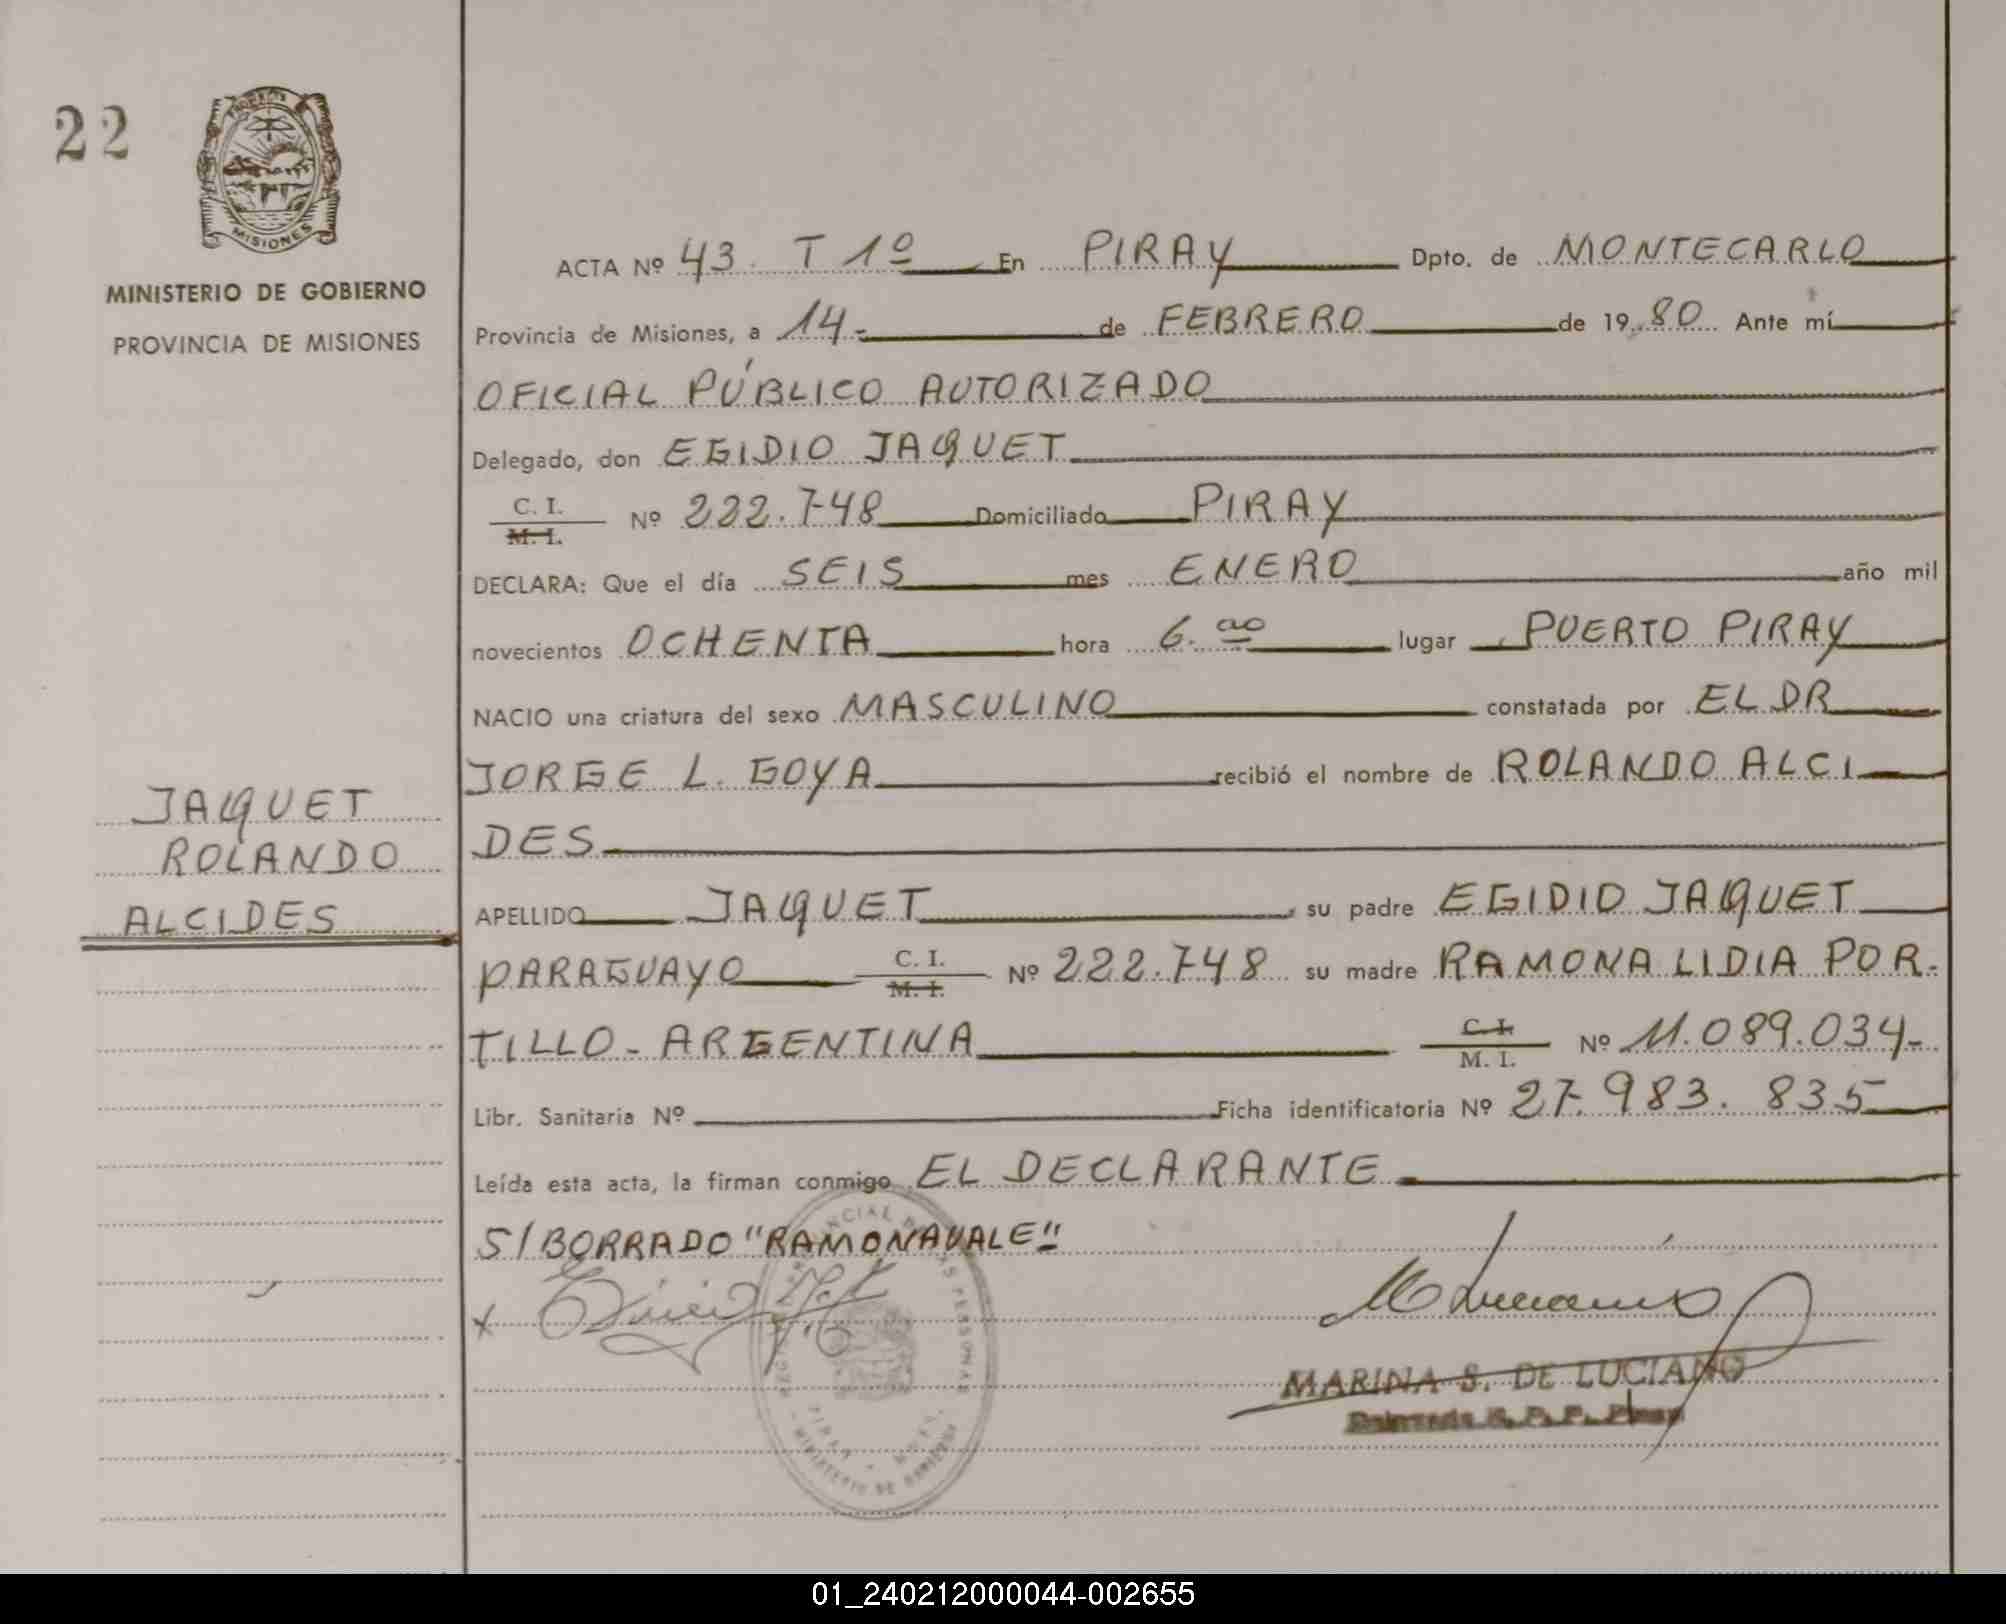 22
MISIONES
MINISTERIO DE GOBIERNO
PROVINCIA DE MISIONES
JAQUET
ROLANDO
ALCIDES
ACTA Nº 43. T 1º En PIRAY Dpto. de MONTECARLO
Provincia de Misiones, a 14- de FEBRERO de 1980 Ante mí
OFICIAL PÚBLICO AUTORIZADO
Delegado, don EGIDIO JAQUET
C. I.
M. I. Nº 222.748 Domiciliado PIRAY
DECLARA: Que el día SEIS mes ENERO año mil
novecientos OCHENTA hora 6.00 lugar PUERTO PIRAY
NACIO una criatura del sexo MASCULINO constatada por EL DR
JORGE L. GOYA recibió el nombre de ROLANDO ALCI
DES
APELLIDO JAQUET su padre EGIDIO JAQUET
PARAGUAYO C. I. M. I. Nº 222.748 su madre RAMONA LIDIA POR-
TILLO - ARGENTINA C. I. M. I. Nº 11.089.034-
Libr. Sanitaria Nº Ficha identificatoria Nº 27.983.835
Leída esta acta, la firman conmigo EL DECLARANTE
S/BORRADO "RAMONAVALE"
MARINA S. DE LUCIANO
01_240212000044-002655